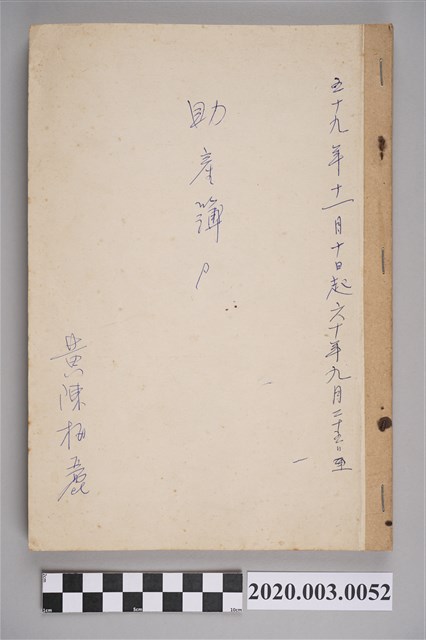 五十九年十一月十日起六十年九月二十五日至
助產簿
黃陳梅麗
2020.003.0052
1cm
5cm
10cm